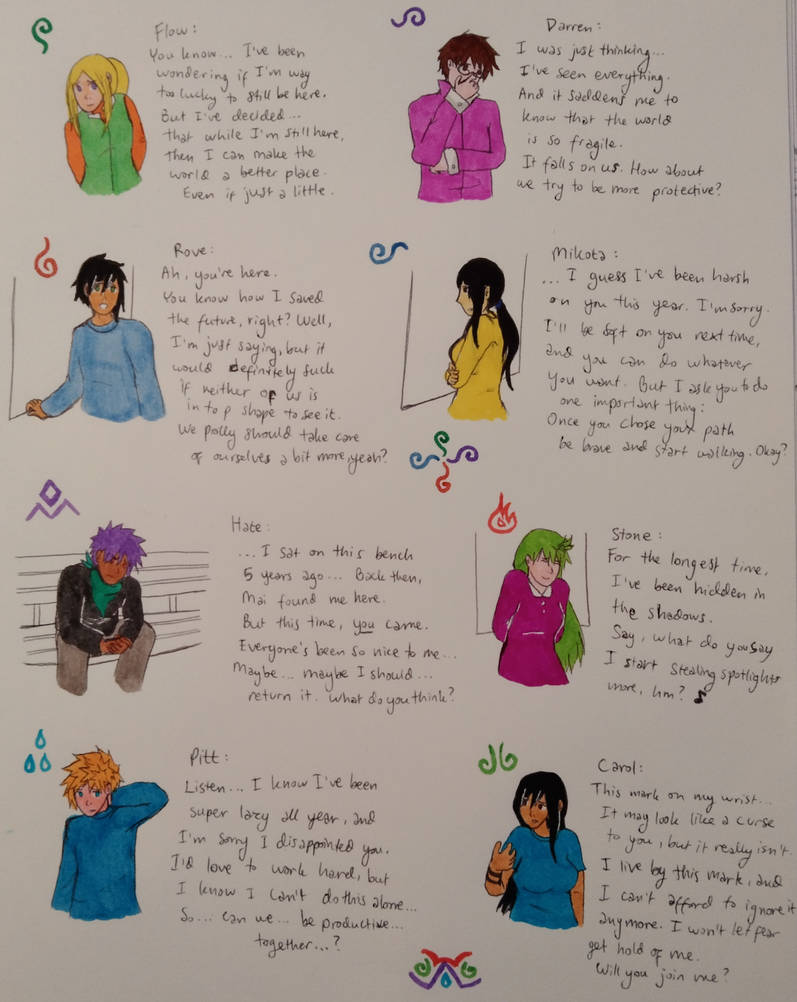 Flow:
You know... I've been
wondering if I'm way
too lucky to still be here.
But I've decided...
that while I'm still here,
then I can make the
world a better place.
Even if just a little.
Darren:
I was just thinking...
I've seen everything.
And it saddens me to
know that the world
is so fragile.
It falls on us. How about
we try to be more protective?
Rove:
Ah, you're here.
You know how I saved
the future, right? Well,
I'm just saying, but it
would definitely suck
if neither of us is
in top shape to see it.
We prolly should take care
of ourselves a bit more, yeah?
Mikota:
... I guess I've been harsh
on you this year. I'm sorry.
I'll be soft on you next time,
and you can do whatever
you want. But I ask you to do
one important thing:
Once you chose your path
be brave and start walking. Okay?
Hate:
... I sat on this bench
5 years ago... Back then,
Mai found me here.
But this time, you came.
Everyone's been so nice to me...
Maybe... maybe I should...
return it. What do you think?
Stone:
For the longest time,
I've been hidden in
the shadows.
Say, what do you say
I start stealing spotlights
more, hm? ♪
Pitt:
Listen... I know I've been
super lazy all year, and
I'm sorry I disappointed you.
I'd love to work hard, but
I know I can't do this alone...
So... can we... be productive...
together...?
Carol:
This mark on my wrist...
It may look like a curse
to you, but it really isn't.
I live by this mark, and
I can't afford to ignore it
anymore. I won't let fear
get hold of me.
Will you join me?